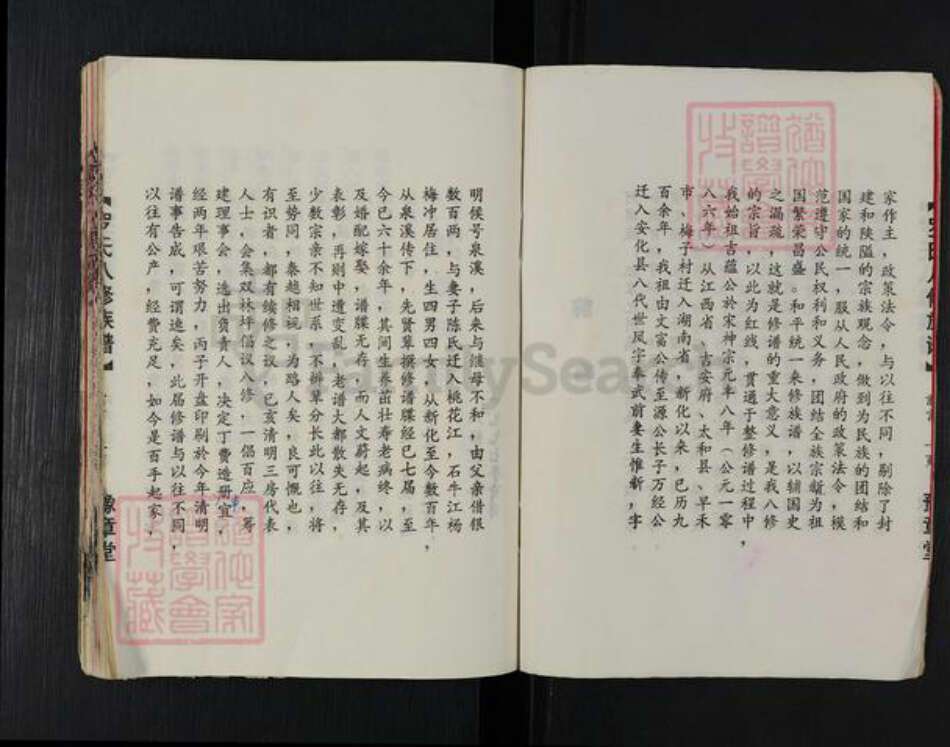 家作主，政策法令，与以往不同，剔除了封
建和陕隘的宗族观念，做到为民族的团结和
国家的统一，服从人民政府的政策法令，模
范遵守公民权利和义务，团结全族宗龄为祖
国繁荣昌盛。和平统一来修族谱，以辅国史
之漏疏，这就是修谱的重大意义，是我八修
的宗旨，以此为红线，贯通于整修谱过程中，
我始祖吉蕴公於宋神宗元丰八年（公元一零
八六年）从江西省、吉安府、太和县、早禾
市、梅子村迁入湖南省，新化以来，已历九
百余年，我祖由文富公传至源公长子万经公
迁入安化县八代世凤字奉武前妻生惟新，字
明候号泉溪，后来与继母不和，由父亲借银
数百两，与妻子陈氏迁入桃花江，石牛江杨
梅冲居住，生四男四女，从新化至今数百年，
从泉溪传下，先贤辈撰修谱牒经已七届，至
今已六十余年，其间生养茁壮寿老病终，以
及婚配嫁娶，谱牒无存，而人文蔚起，及其
表彰，再则中遭变乱，老谱大都散失无存，
少数宗亲不知世系，不辨辈分长此以往，将
至势同，秦越相视，为路人矣，良可慨也，
有识者，都有续修之议，己亥清明三房代表
人士，会集双林坪倡议八修，一倡百应，筹
建理事会，选出负责人，决定丁费造册宜，
经两年艰苦努力，丙子开盘印刷於今年清明
谱事告成，可谓速矣，此届修谱与以往不同，
以往有公产，经费充足，如今是百手起家，
氏八修族谱】
豫章堂
豫章堂
FamilySearch